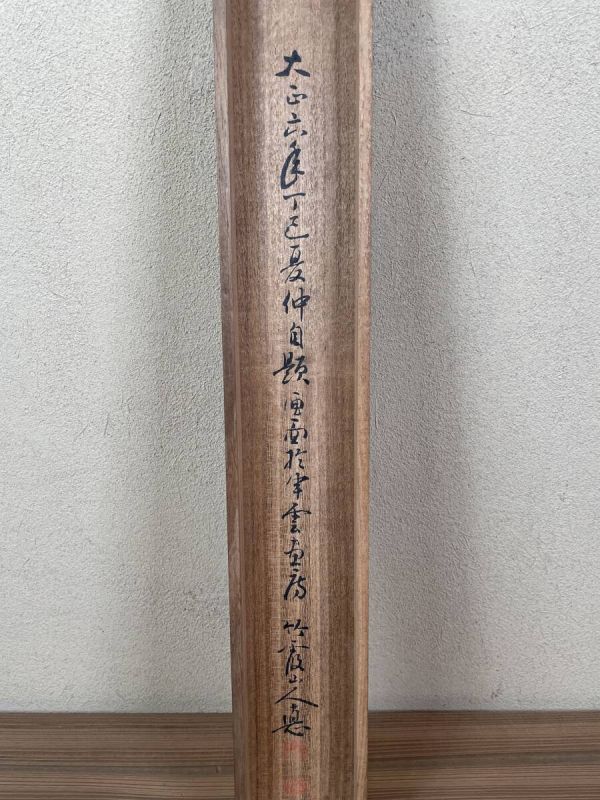 大正六年丁巳夏仲自題画面於半雲画房 竹霞山人